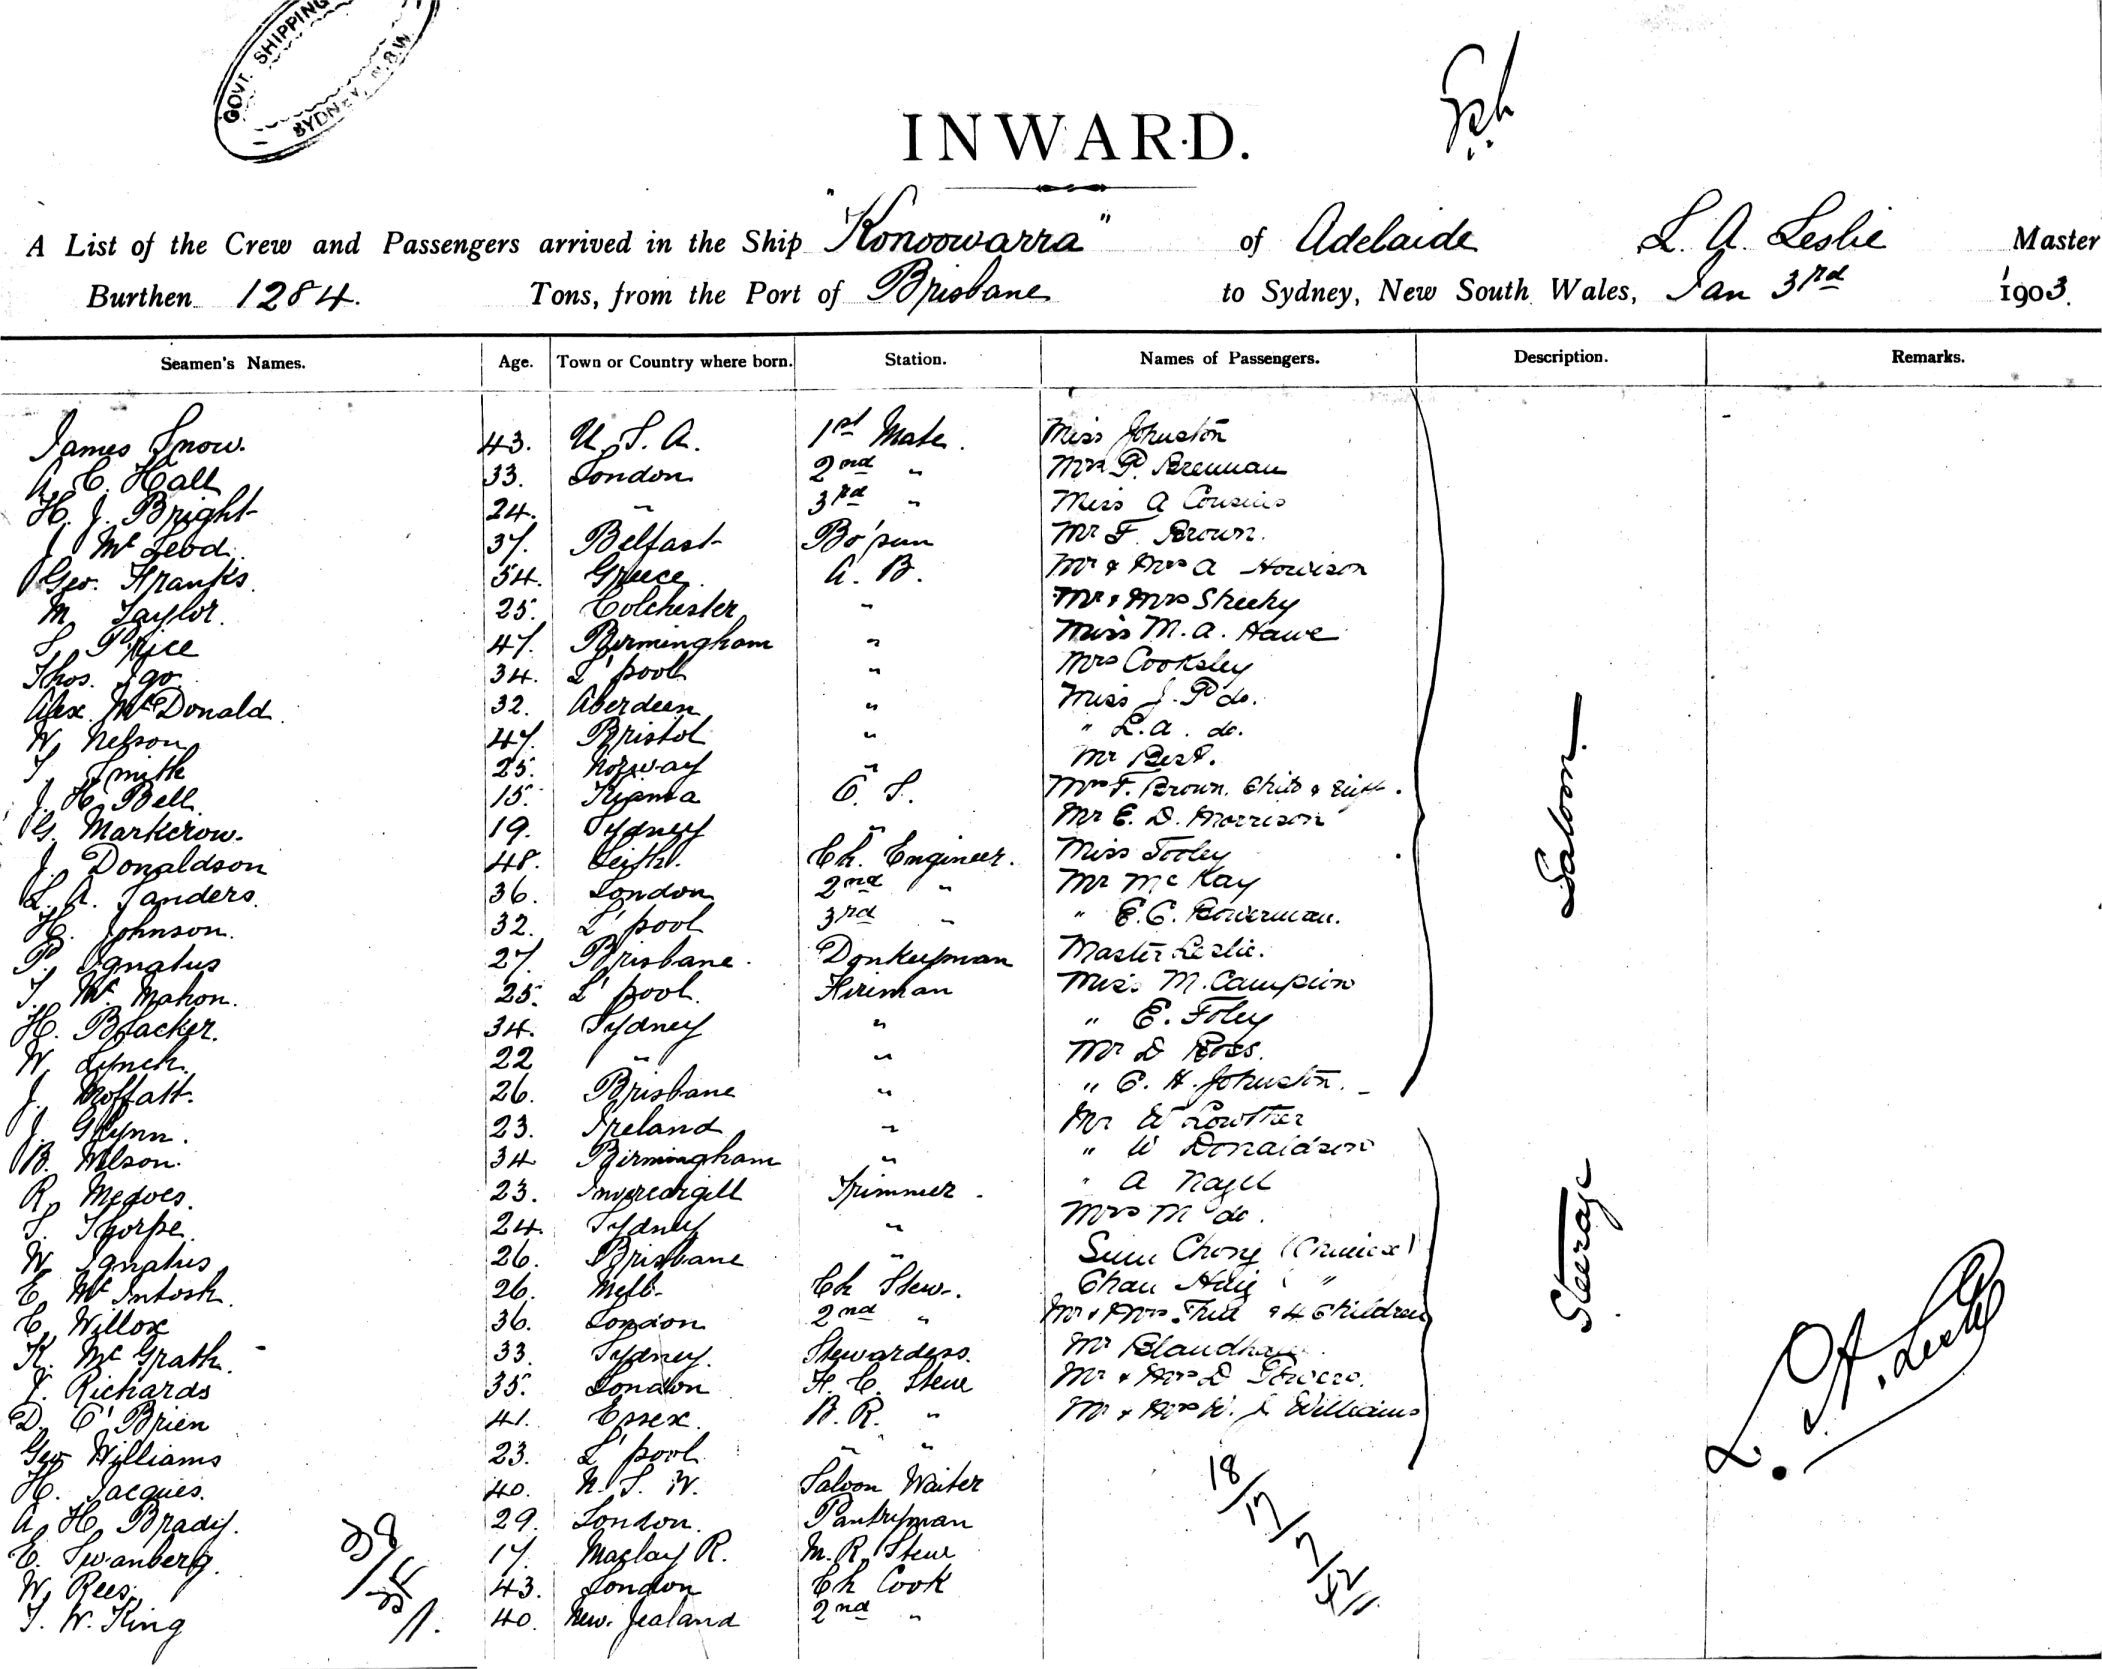 GOVT. SHIPPING
SYDNEY, N.S.W.
INWARD.
A List of the Crew and Passengers arrived in the Ship "Konoowarra" of Adelaide L. A. Leslie Master
Burthen 1284. Tons, from the Port of Brisbane to Sydney, New South Wales, Jan 3rd 1903.
Seamen's Names. Age. Town or Country where born. Station. Names of Passengers. Description. Remarks.
James Snow. 43. U.S.A. 1st Mate. Miss Johnston
A. C. Hall 33. London 2nd " Mrs P. Brennan
H. J. Bright 24. " 3rd " Miss A Cousins
J. McLeod. 37. Belfast Bo'sun Mr F. Brown.
Geo. Franks. 54. Greece. A. B. Mr & Mrs A Howison
M. Taylor. 25. Colchester " Mr & Mrs Sheehy
S. Price 47. Birmingham " Miss M. A. Hawe
Thos. Igo. 34. L'pool " Mrs Cooksley
Alex. McDonald. 32. Aberdeen " Miss J. P do.
W. Nelson 47. Bristol " " L. A. do.
T. Smith 25. Norway " Mr Best.
J. H. Bell 15. Kiama O. S. Mrs F. Brown. Child &
G. Markerow. 19. Sydney " Mr E. D. Morrison
J. Donaldson 48. Leith. Ch. Engineer. Miss Tooley
L. A. Sanders. 36. London 2nd " Mr McKay
H. Johnson. 32. L'pool 3rd " " E. C. Bowerman.
P. Ignatus 27. Brisbane. Donkeyman Master Leslie.
T. McMahon. 25. L'pool. Fireman Miss M. Campion
H. Blacker. 34. Sydney " " E. Foley
W. Lynch. 22 " " Mr D Ross.
J. Moffatt. 26. Brisbane " " C. H. Johnston.
Saloon
J. Glynn. 23. Ireland " Mr W Lowther
B. Wilson. 34 Birmingham " " W Donaldson
R. Medoes. 23. Invercargill Trimmer. " A Nagel
S. Thorpe. 24. Sydney " Mrs M do.
W. Ignatus 26. Brisbane " Sum Chong (Chinese)
E. McIntosh. 26. Melb. Ch Stew. Chau "
C. Willox 36. London 2nd " Mr & Mrs & 4 Children
K. McGrath. 33. Sydney. Stewardess. Mr
T. Richards 35. London F. C. Stew Mr & Mrs D Powers.
D. O'Brien 41. Essex. B. R. " Mr & Mrs W. J Williams
Steerage
Geo Williams 23. L'pool " "
H. Jacques. 40. N. S. W. Saloon Waiter
A. H. Brady. 29. London. Pantryman
E. Swanberg. 17. Maclay R. M. R. Stew
W. Rees. 43. London Ch Cook
T. W. King 40. New. Zealand 2nd "
38
18/17/7/42
L. A. Leslie